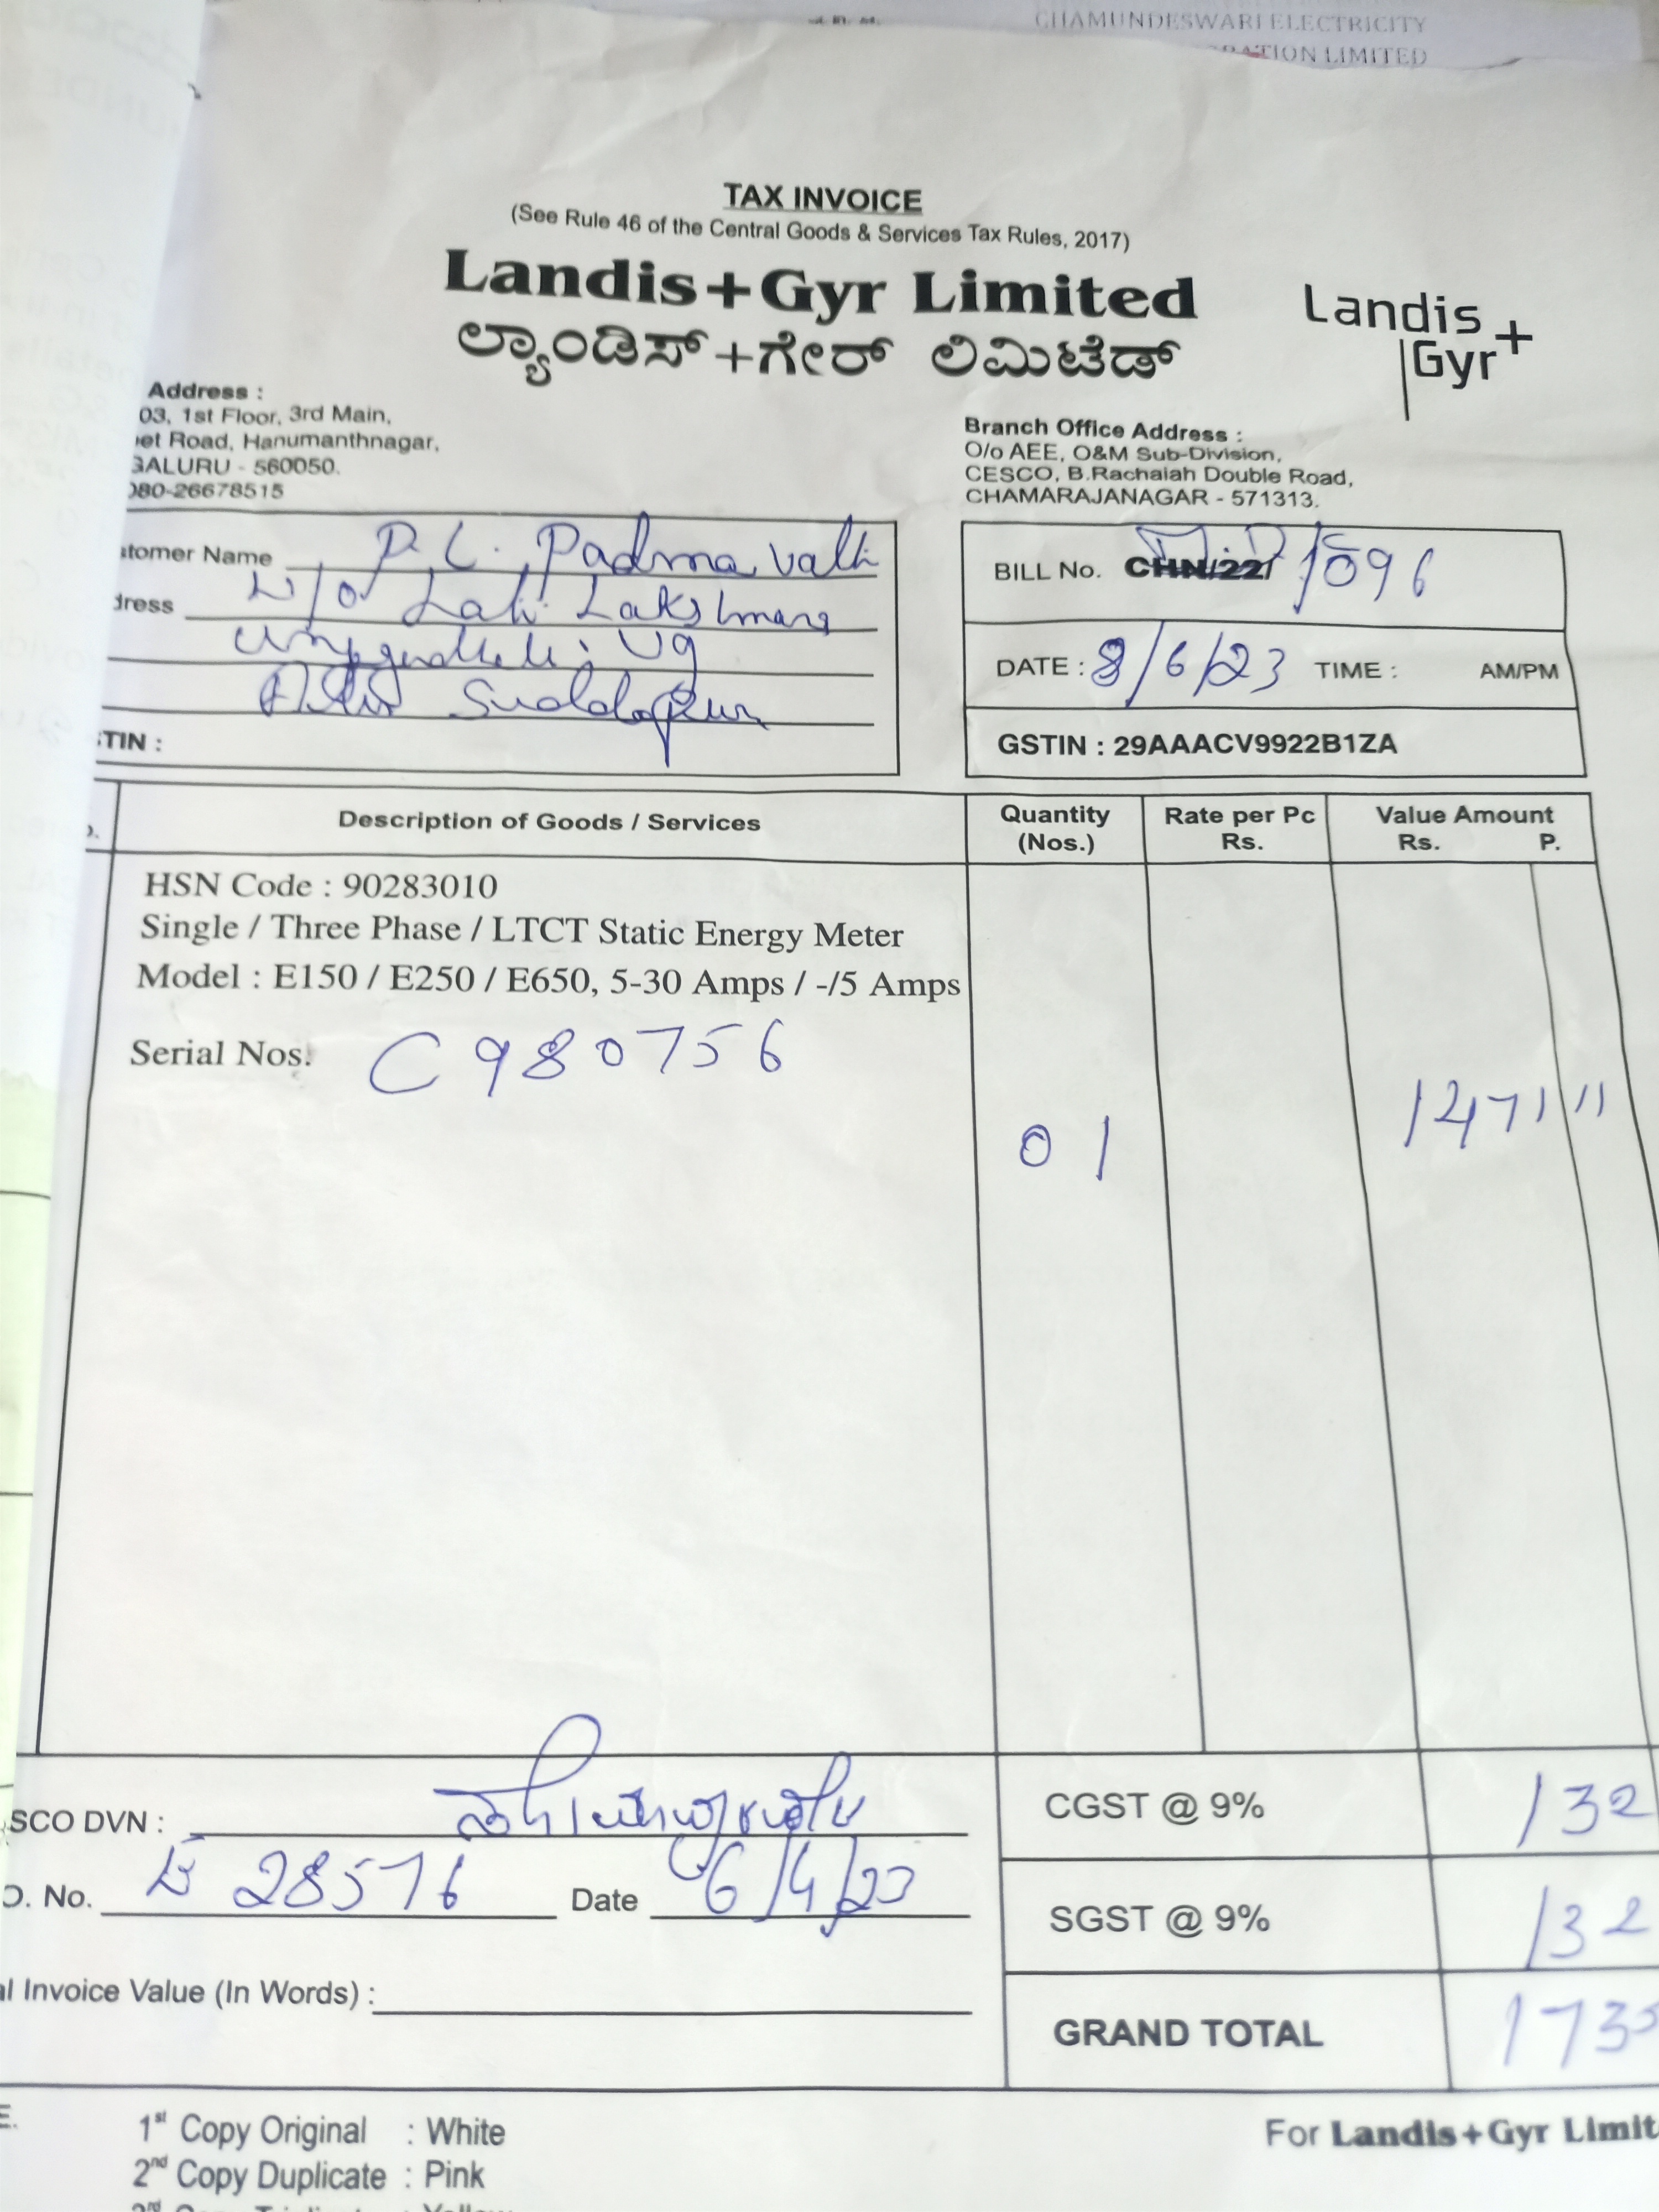 CHAMUNDESWARI ELECTRICITY
RATION LIMITED
TAX INVOICE
(See Rule 46 of the Central Goods & Services Tax Rules, 2017)
Landis+Gyr Limited
ಲ್ಯಾಂಡಿಸ್+ಗೇರ್ ಲಿಮಿಟೆಡ್
Landis+
Gyr
Address :
03, 1st Floor, 3rd Main,
et Road, Hanumanthnagar,
GALURU - 560050.
080-26678515
Branch Office Address :
O/o AEE, O&M Sub-Division,
CESCO, B.Rachaiah Double Road,
CHAMARAJANAGAR - 571313.
tomer Name P. L. Padmavathi
dress W/o Late Lakshmana
Vg
Siddapura
TIN :
BILL No. CHN/22/ 1096
DATE : 8/6/23 TIME : AM/PM
GSTIN : 29AAACV9922B1ZA
Description of Goods / Services
Quantity
(Nos.)
Rate per Pc
Rs.
Value Amount
Rs. P.
HSN Code : 90283010
Single / Three Phase / LTCT Static Energy Meter
Model : E150 / E250 / E650, 5-30 Amps / -/5 Amps
Serial Nos. C980756
01
1471 11
SCO DVN :
O. No. 28576 Date 6/4/23
CGST @ 9% 132
SGST @ 9% 132
l Invoice Value (In Words) :
GRAND TOTAL 1735
E.
1st Copy Original : White
2nd Copy Duplicate : Pink
For Landis+Gyr Limit